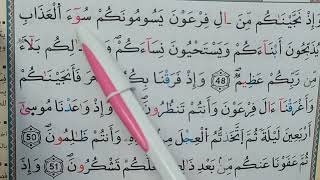 وَإِذْ نَجَّيْنَٰكُم مِّنَ ءَالِ فِرْعَوْنَ يَسُومُونَكُمْ سُوٓءَ ٱلْعَذَابِ
يُذَبِّحُونَ أَبْنَآءَكُمْ وَيَسْتَحْيُونَ نِسَآءَكُمْ وَفِے ذَٰلِكُم بَلَآءٌ
مِّن رَّبِّكُمْ عَظِيمٌ 48 وَإِذْ فَرَقْنَا بِكُمُ
وَأَغْرَقْنَا ءَالَ فِرْعَوْنَ وَأَنتُمْ تَنظُرُونَ 49 وَإِذْ وَٰعَدْنَا مُوسَىٰٓ
أَرْبَعِينَ لَيْلَةً ثُمَّ ٱتَّخَذتُّمُ ٱلْعِجْلَ مِنۢ وَأَنتُمْ ظَٰلِمُونَ 50
ثُمَّ عَفَوْنَا عَنكُم مِّنۢ بَعْدِ ذَٰلِكَ لَعَلَّكُمْ تَشْكُرُونَ 51 وَإِذَ